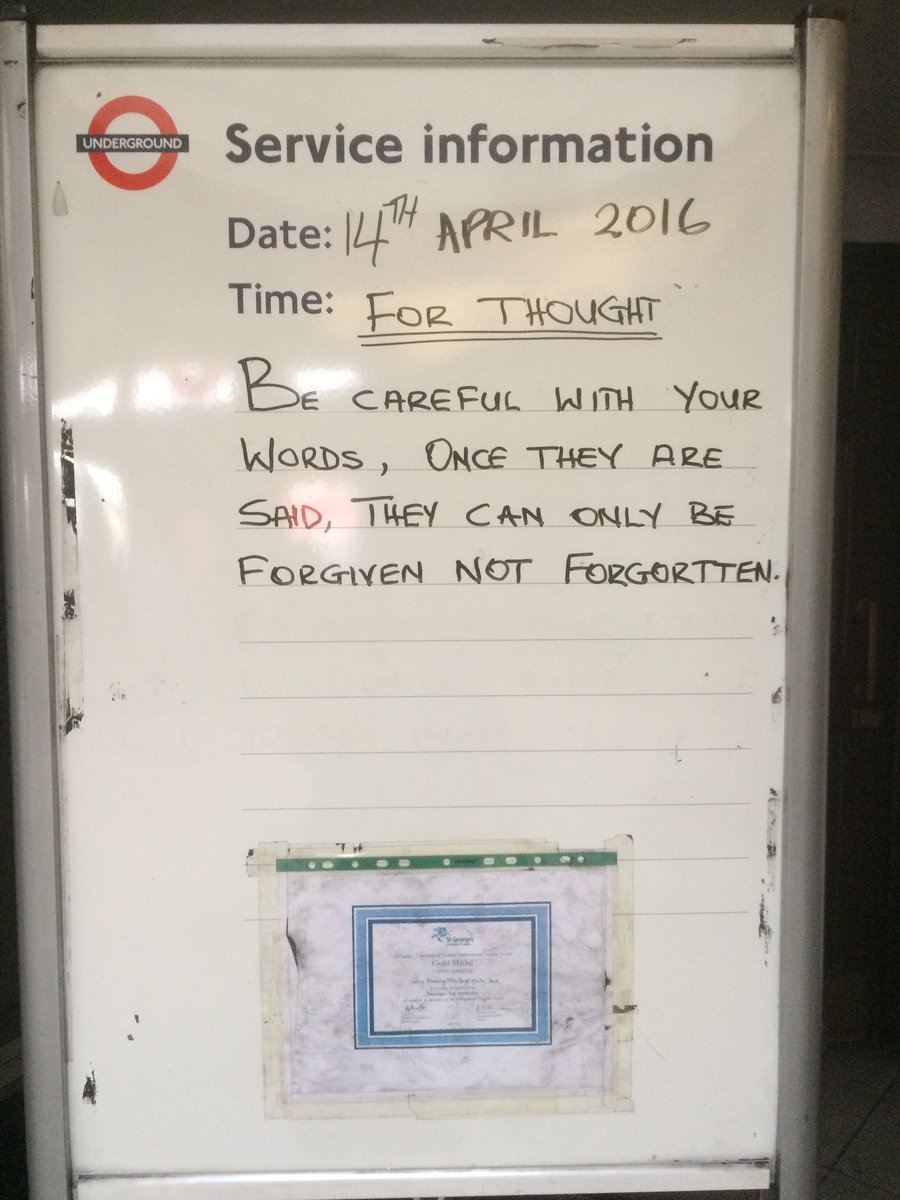 UNDERGROUND
Service information
Date: 14TH APRIL 2016
Time: FOR THOUGHT
BE CAREFUL WITH YOUR
WORDS, ONCE THEY ARE
SAID, THEY CAN ONLY BE
FORGIVEN NOT FORGORTTEN.
St George's
Gold Medal